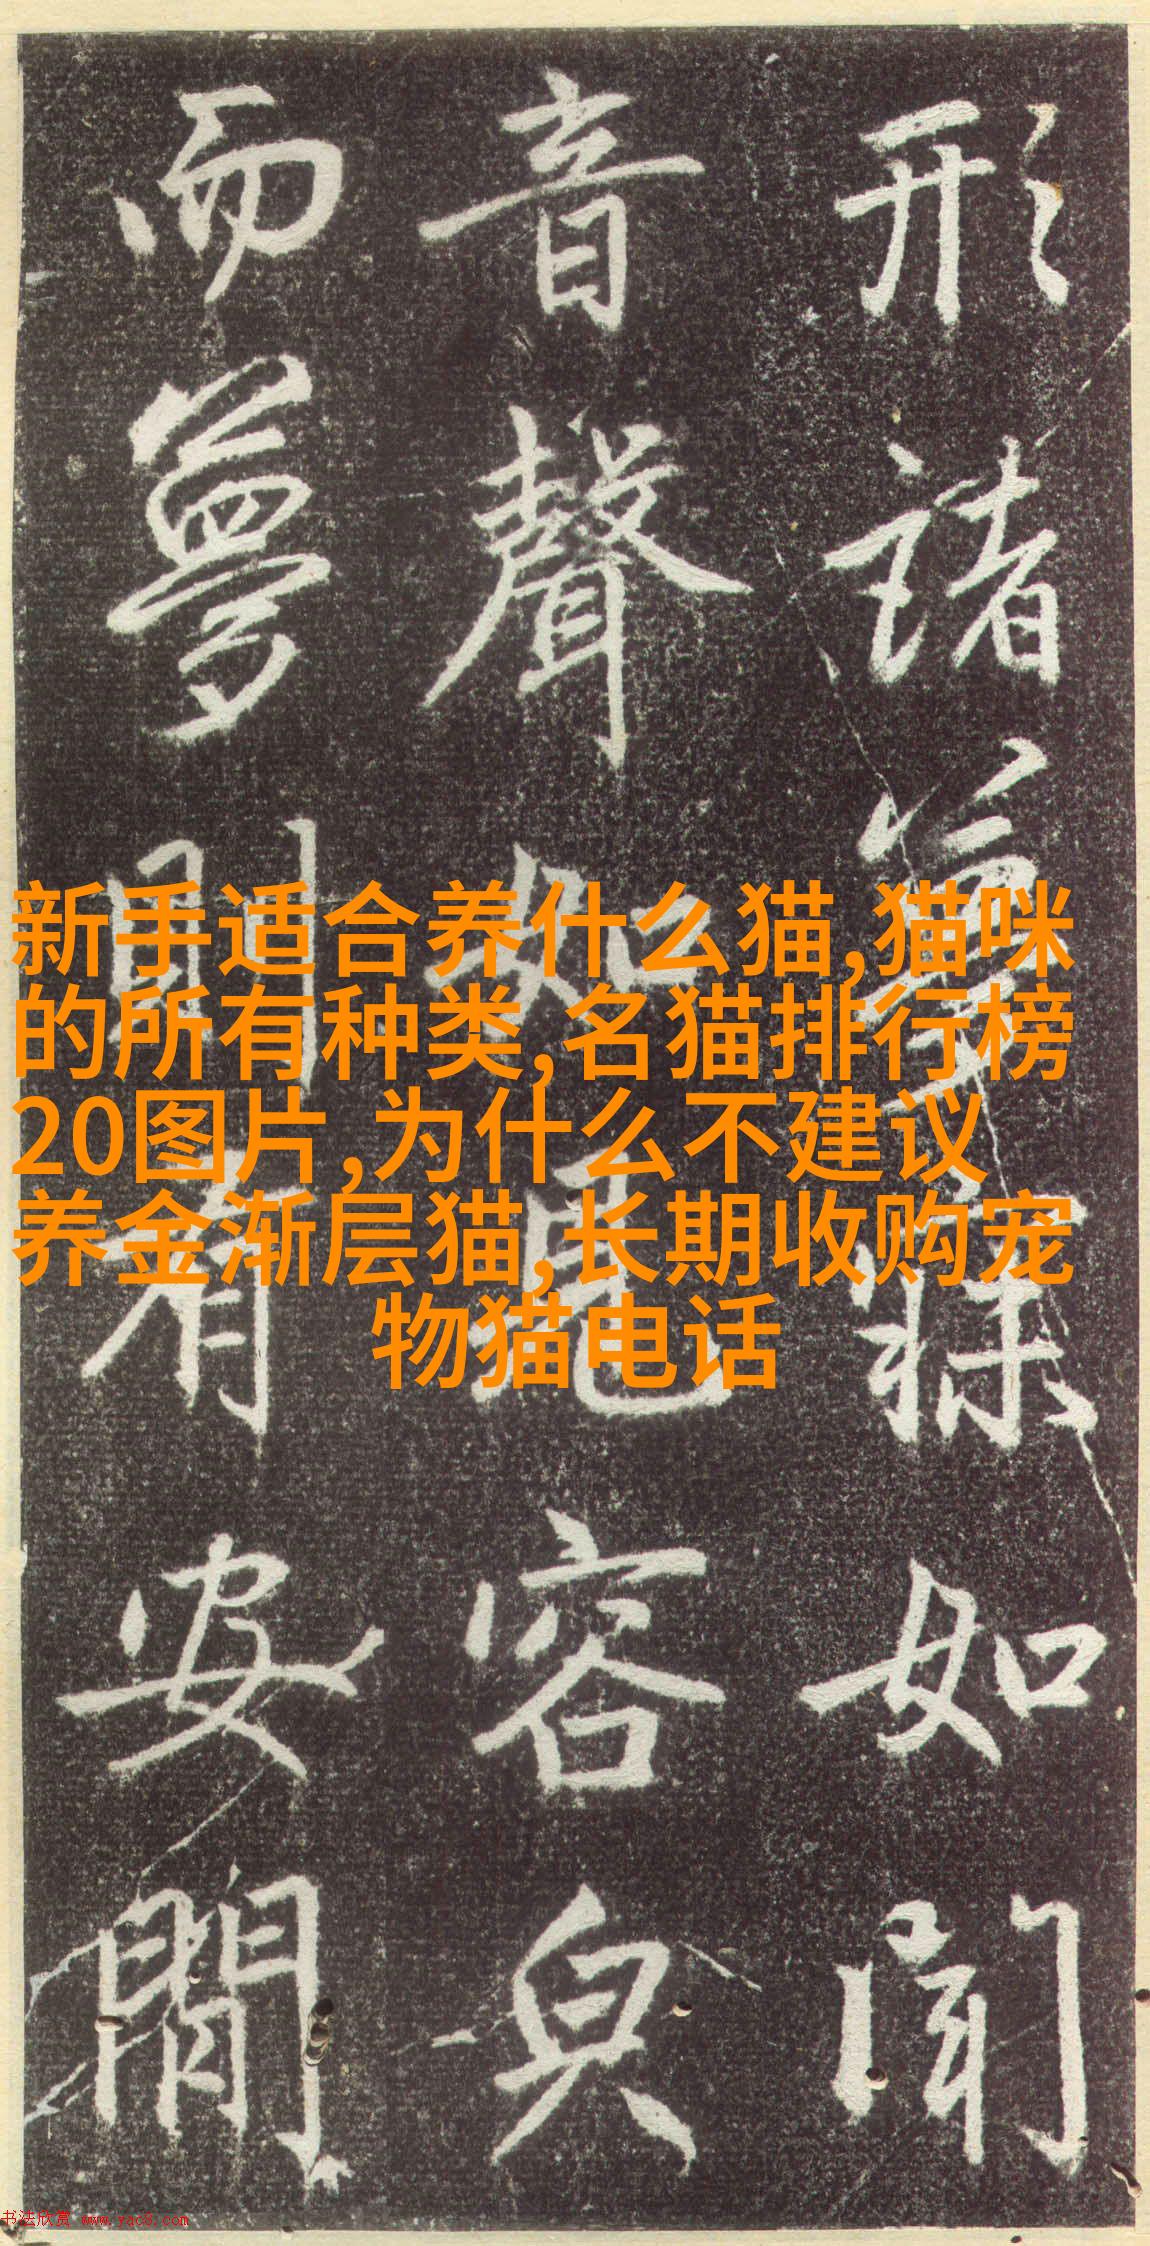 形諸夢寐如聞
音聲如見容皃
而夢則有安閒
新手适合养什么猫,猫咪
的所有种类,名猫排行榜
20图片,为什么不建议
养金渐层猫,长期收购宠
物猫电话
书法欣赏 www.yac8.com